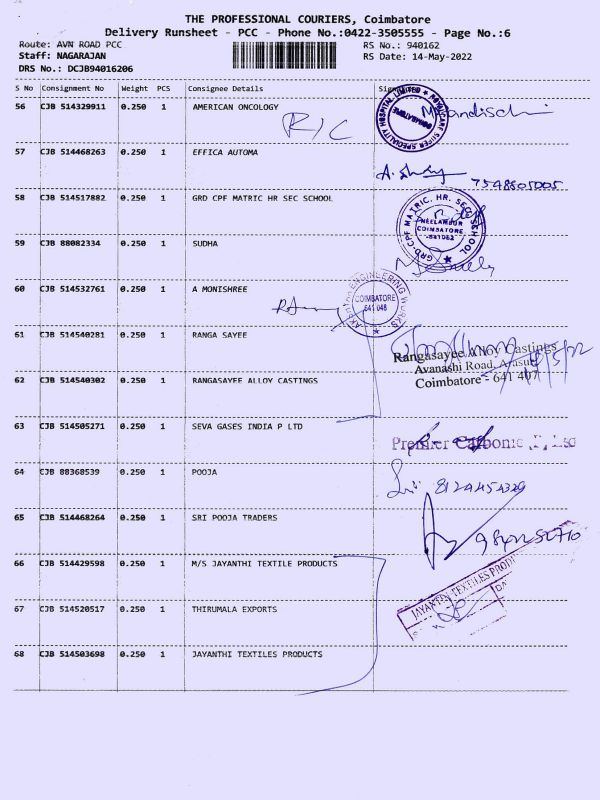 THE PROFESSIONAL COURIERS, Coimbatore
Delivery Runsheet - PCC - Phone No.:0422-3505555 - Page No.:6
Route: AVN ROAD PCC RS No.: 940162
Staff: NAGARAJAN RS Date: 14-May-2022
DRS No.: DCJB94016206
S No Consignment No Weight PCS Consignee Details
56 CJB 514329911 0.250 1 AMERICAN ONCOLOGY
R/C
57 CJB 514468263 0.250 1 EFFICA AUTOMA
7548805005
58 CJB 514517882 0.250 1 GRD CPF MATRIC HR SEC SCHOOL
GRD-CPF MATRIC. HR. SEC. SCHOOL
NEELAMBUR
COIMBATORE
59 CJB 88082334 0.250 1 SUDHA
60 CJB 514532761 0.250 1 A MONISHREE
ENGINEERING WORKS
COIMBATORE
641 048
61 CJB 514540281 0.250 1 RANGA SAYEE
Rangasayee Alloy Castings
Avanashi Road, Arasur
Coimbatore - 641 407
62 CJB 514540302 0.250 1 RANGASAYEE ALLOY CASTINGS
63 CJB 514505271 0.250 1 SEVA GASES INDIA P LTD
Premier Carbonic
64 CJB 88368539 0.250 1 POOJA
65 CJB 514468264 0.250 1 SRI POOJA TRADERS
66 CJB 514429598 0.250 1 M/S JAYANTHI TEXTILE PRODUCTS
JAYANTHI TEXTILES PRODU
67 CJB 514520517 0.250 1 THIRUMALA EXPORTS
68 CJB 514503698 0.250 1 JAYANTHI TEXTILES PRODUCTS